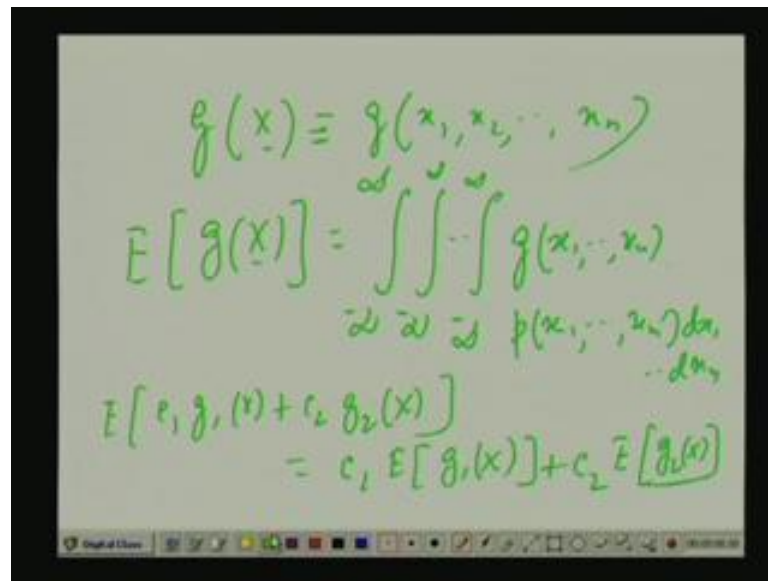 g(x) ≡ g(x₁, x₂, ..., xₙ)
E[g(x)] = ∫∫..∫ g(x₁, .., xₙ)
∞ ∞ ∞
-∞ -∞ -∞ p(x₁, .., xₙ) dx₁
.. dxₙ
E[c₁ g₁(x) + c₂ g₂(x)]
= c₁ E[g₁(x)] + c₂ E[g₂(x)]